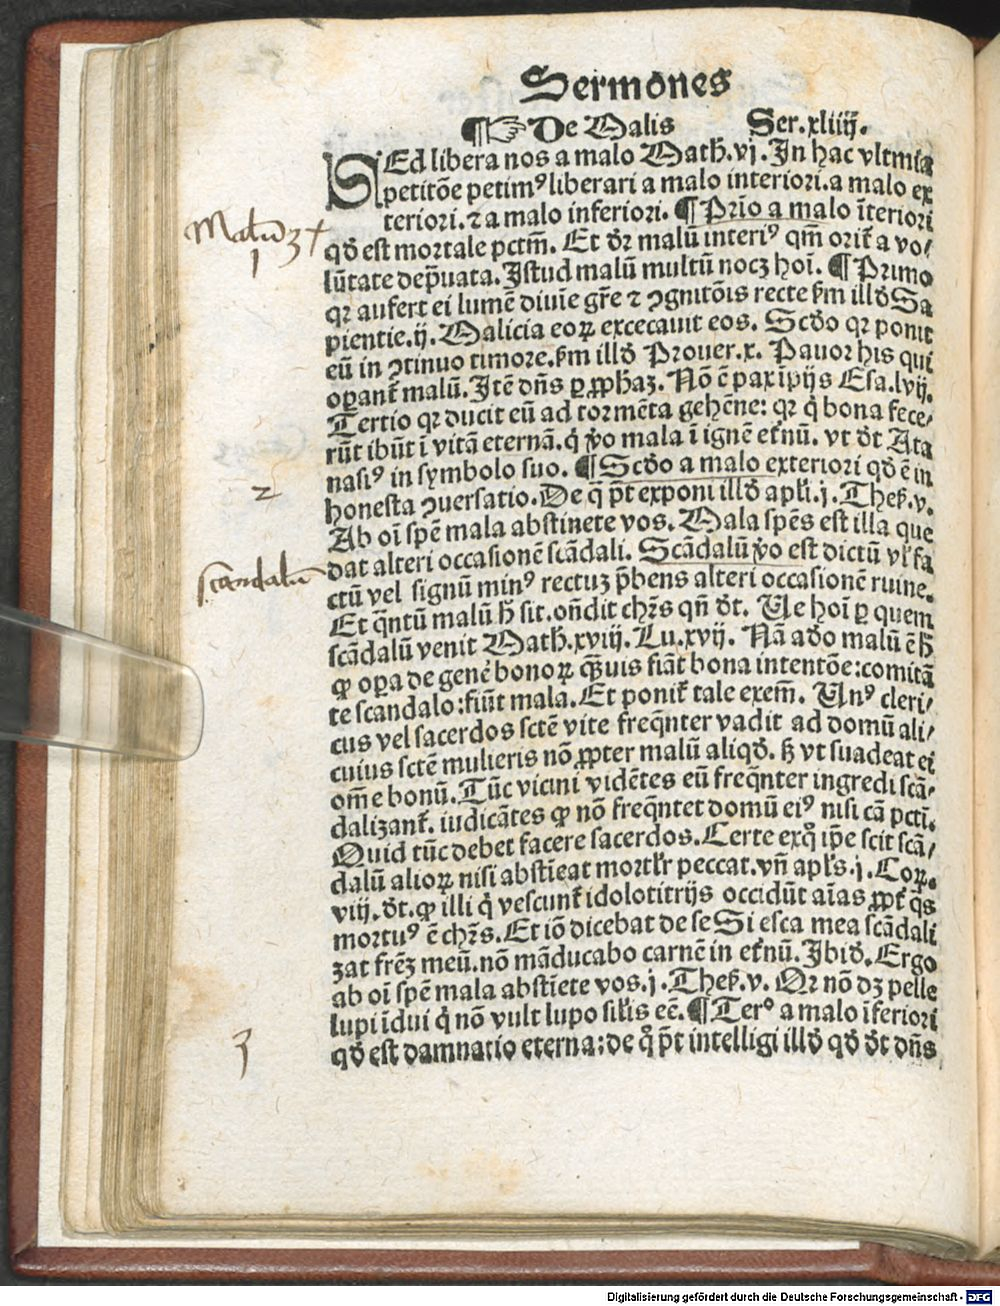 Sermones
¶☞ De Malis Ser. xliiij.
SEd libera nos a malo Math̄. vj. In hac vltmia
petitōe petimꝰ liberari a malo interiori. a malo ex
teriori. ⁊ a malo inferiori. ¶ Prīo a malo īteriori
qđ est mortale pctm̄. Et dr̄ malū interiꝰ qm̄ orit᷑ a vo/
lūtate dep̄uata. Istud malū multū nocꝫ hoī. ¶ Primo
qꝛ aufert ei lumē diuīe gr̄e ⁊ ꝯgnitōis recte ẜm illđ Sa
pientie. ij. Malicia eoꝝ excecauit eos. Scđo qꝛ ponit
eū in ꝯtinuo timore. ẜm illđ Prouer. x. Pauor his qui
oꝑant᷑ malū. Itē dn̄s ꝑ ꝓphaꝫ. Nō ē pax īpijs Esa. lvij.
Tertio qꝛ ducit eū ad tormēta gehēne: qꝛ q̇ bona fece/
rūt ibūt ī vitā eternā. q̇ ꝟo mala ī ignē et᷑nū. vt dt̄ Ata
nasiꝰ in symbolo suo. ¶ Scđo a malo exteriori qđ ē in
honesta ꝯuersatio. De q̄ pt̄ exponi illđ apl̄i. j. Theß. v.
Ab oī spē mala abstinete vos. Mala spēs est illa que
dat alteri occasionē scādali. Scādalū ꝟo est dictū vl̄ fa
ctū vel signū minꝰ rectuꝫ p̄bens alteri occasionē ruine.
Et q̄ntū malū h̄ sit. on̄dit chr̄s qn̄ dt̄. Ue hoī ꝑ quem
scādalū venit Math̄. xviij. Lu. xvij. Nā ađo malū ē h̄
ꝙ oꝑa de gene᷑ bonoꝝ q̄ꝫuis fiāt bona intentōe: comitā
te scandalo: fiūt mala. Et ponit᷑ tale exem̄. Unꝰ cleri/
cus vel sacerdos sctē vite freq̄nter vadit ad domū ali/
cuius sctē mulieris nō ꝓpter malū aliqđ. ß vt suadeat ei
om̄e bonū. Tūc vicini vidētes eū freq̄nter ingredi scā/
dalizant᷑. iudicātes ꝙ nō freq̄ntet domū eiꝰ nisi cā pctī.
Quid tūc debet facere sacerdos. Certe exq̊ ip̄e scit scā/
dalū alioꝝ nisi abstīeat mortl̄r peccat. vn̄ apl̄s. j. Coꝝ.
viij. dt̄. ꝙ illi q̇ vescunt᷑ idolotitrijs occidūt aīas ꝓpt᷑ q̄s
mortuꝰ ē chr̄s. Et iō dicebat de se Si esca mea scādali
zat frēꝫ meū. nō māducabo carnē in et᷑nū. Ibiđ. Ergo
ab oī spē mala abstīete vos. j. Theß. v. Qꝛ nō dꝫ pelle
lupi īdui q̇ nō vult lupo sil̄is eē. ¶ Terº a malo īferiori
qđ est damnatio eterna: de q̊ pt̄ intelligi illđ qđ dt̄ dn̄s
Malū ꝫ +
1
2
scandalū
3
Digitalisierung gefördert durch die Deutsche Forschungsgemeinschaft - DFG